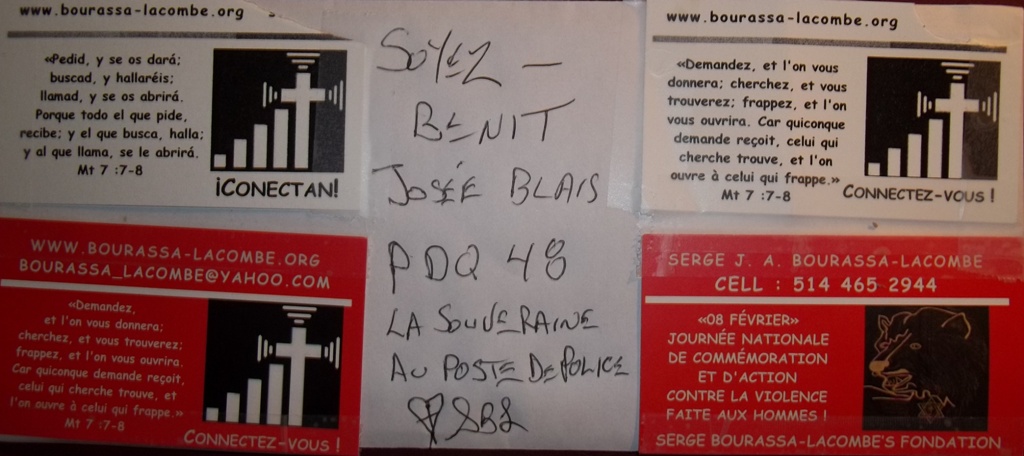 www.bourassa-lacombe.org
«Pedid, y se os dará;
buscad, y hallaréis;
llamad, y se os abrirá.
Porque todo el que pide,
recibe; y el que busca, halla;
y al que llama, se le abrirá.
Mt 7 :7-8
¡CONECTAN!
WWW.BOURASSA-LACOMBE.ORG
BOURASSA_LACOMBE@YAHOO.COM
«Demandez,
et l'on vous donnera;
cherchez, et vous trouverez;
frappez, et l'on vous ouvrira.
Car quiconque demande reçoit,
celui qui cherche trouve, et
l'on ouvre à celui qui frappe.»
Mt 7 :7-8
CONNECTEZ-VOUS !
SOYEZ —
BENIT
JOSÉE BLAIS
PDQ 48
LA SOUVERAINE
AU POSTE DE POLICE
SBL
www.bourassa-lacombe.org
«Demandez, et l'on vous
donnera; cherchez, et vous
trouverez; frappez, et l'on
vous ouvrira. Car quiconque
demande reçoit, celui qui
cherche trouve, et l'on
ouvre à celui qui frappe.»
Mt 7 :7-8
CONNECTEZ-VOUS !
SERGE J. A. BOURASSA-LACOMBE
CELL : 514 465 2944
«08 FÉVRIER»
JOURNÉE NATIONALE
DE COMMÉMORATION
ET D'ACTION
CONTRE LA VIOLENCE
FAITE AUX HOMMES !
SERGE BOURASSA-LACOMBE'S FONDATION